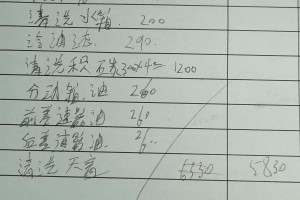 清洗水箱. 200
冷油滤. 290.
清洗积石炭300×4=1200
分动箱油 260
前差速器油 260
后差速器油. 260
清洗天窗 6330 5830